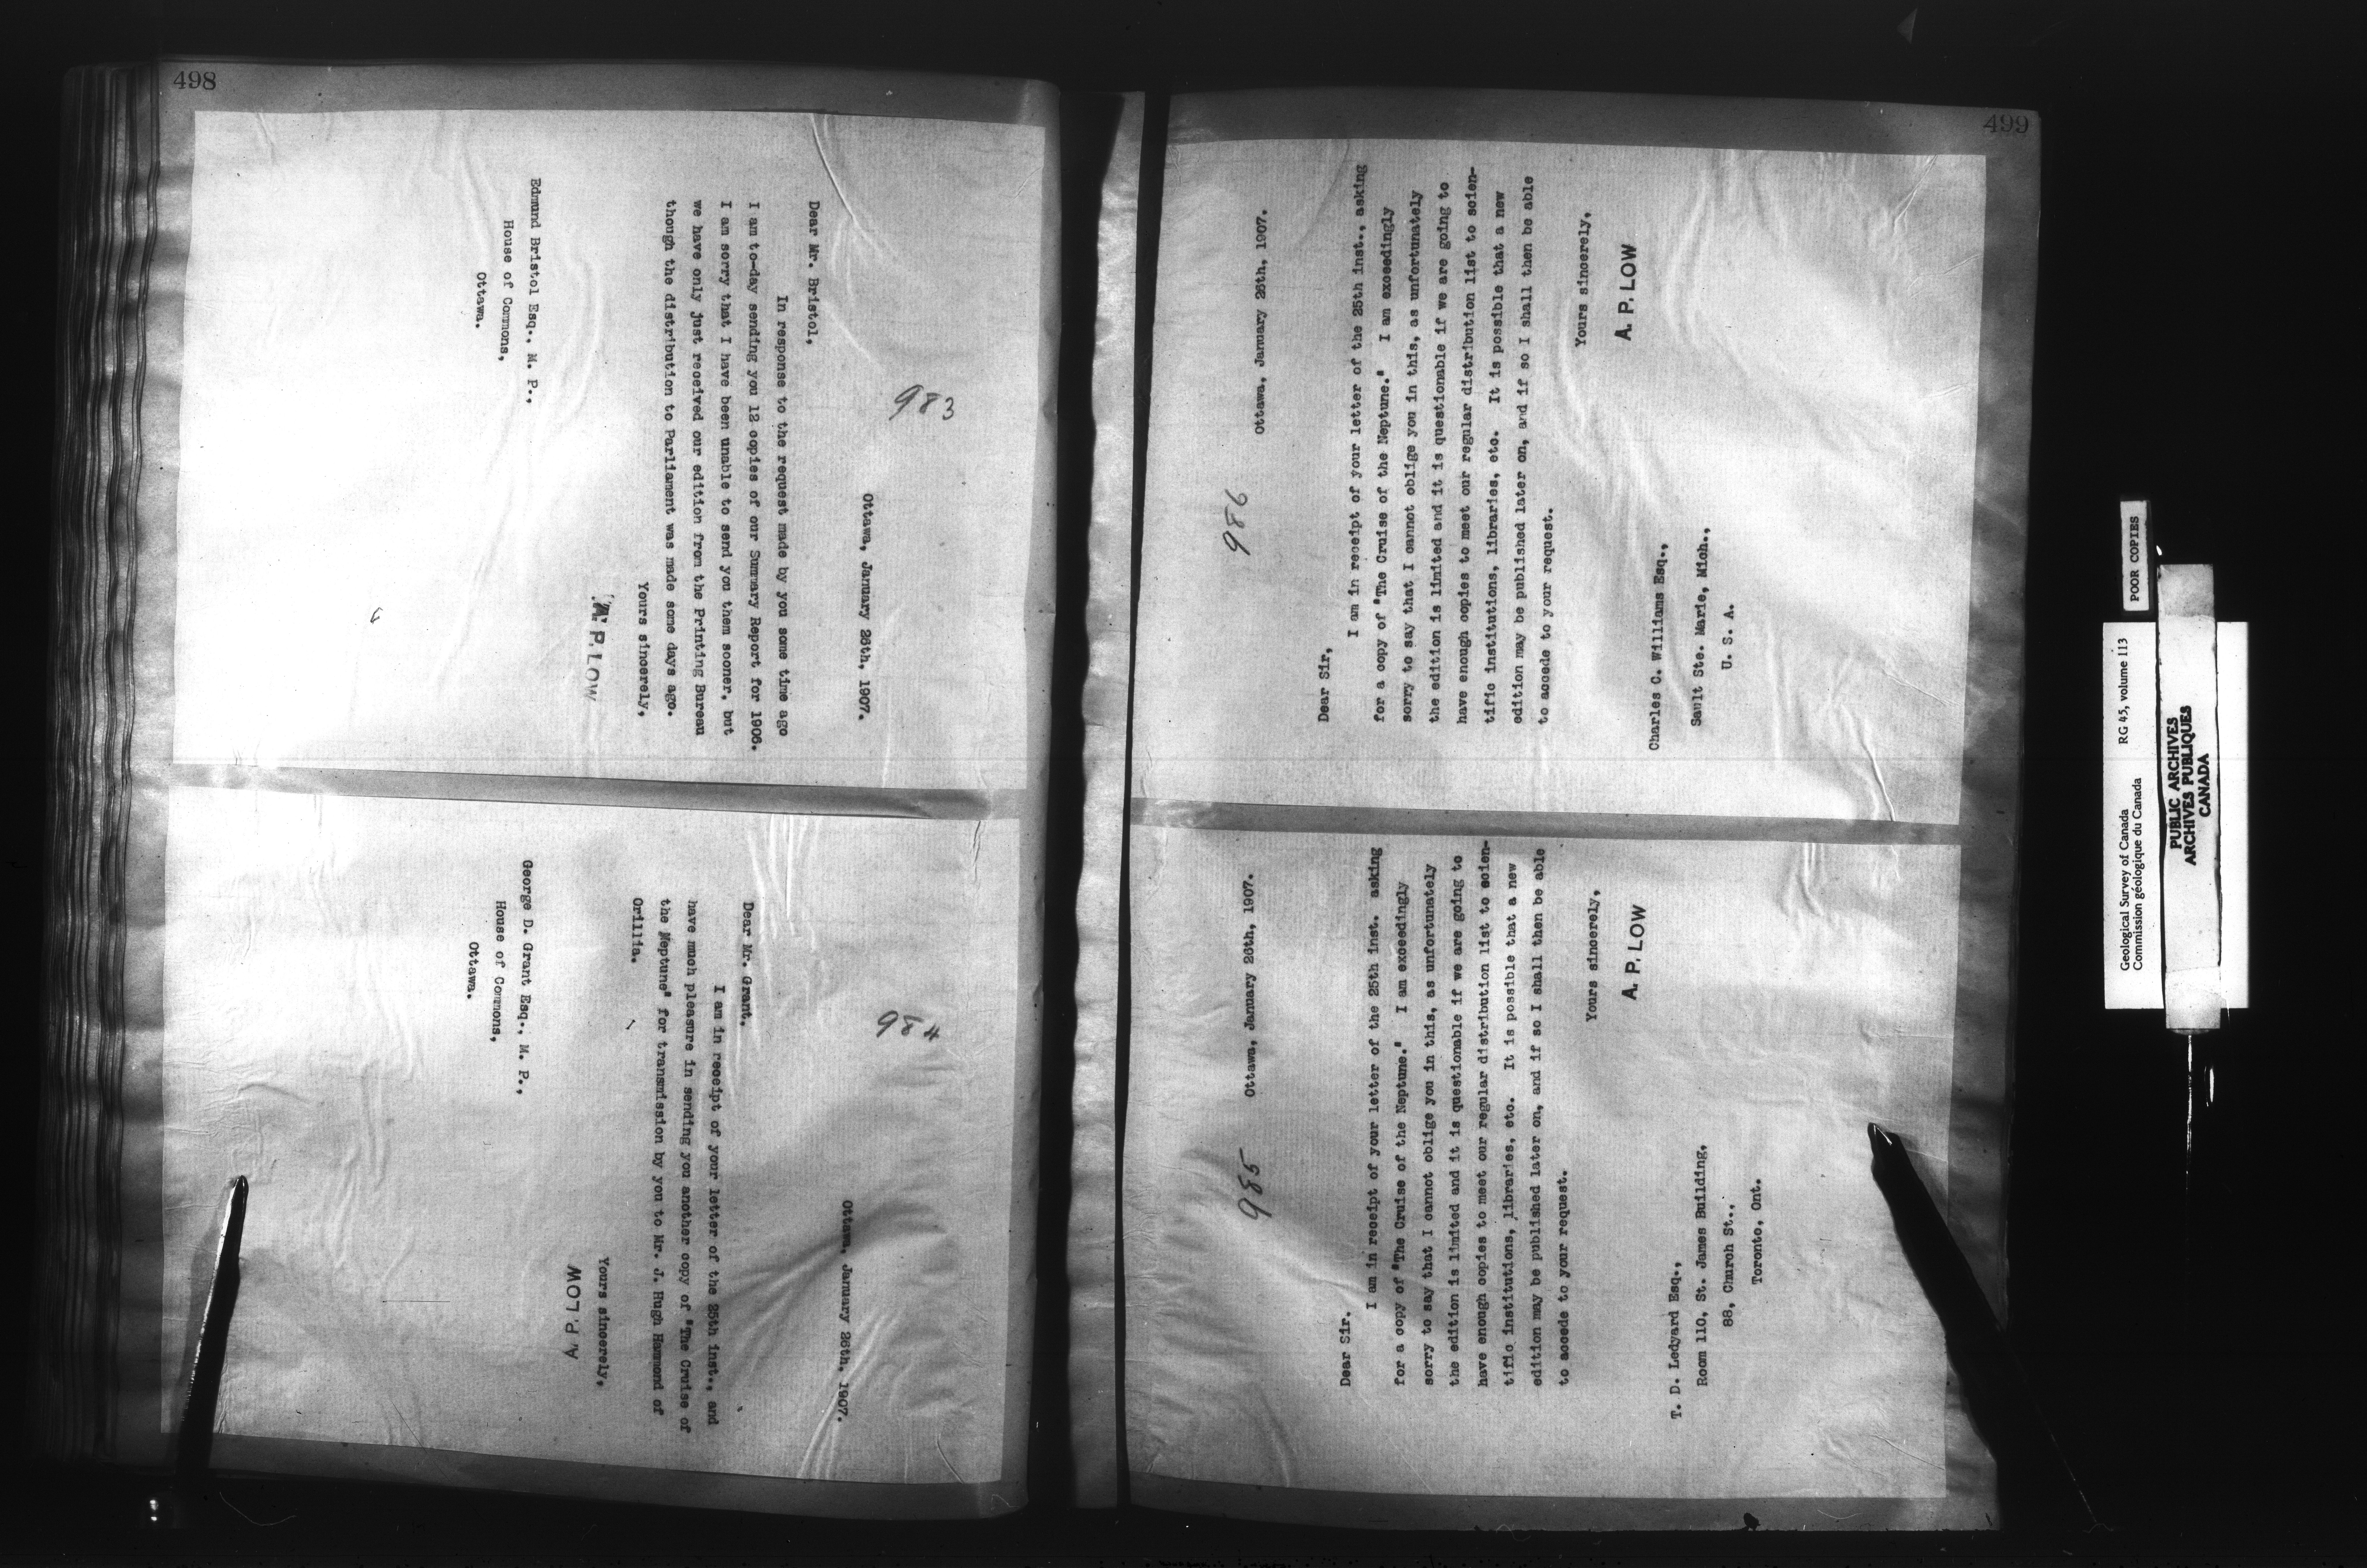 498
983
Ottawa, January 26th, 1907.
Dear Mr. Bristol,
In response to the request made by you some time ago
I am to-day sending you 12 copies of our Summary Report for 1906.
I am sorry that I have been unable to send you them sooner, but
we have only just received our edition from the Printing Bureau
though the distribution to Parliament was made some days ago.
Yours sincerely,
A. P. LOW
Edmund Bristol Esq., M. P.,
House of Commons,
Ottawa.
984
Ottawa, January 26th, 1907.
Dear Mr. Grant,
I am in receipt of your letter of the 25th inst., and
have much pleasure in sending you another copy of "The Cruise of
the Neptune" for transmission by you to Mr. J. Hugh Hammond of
Orillia.
Yours sincerely,
A. P. LOW
George D. Grant Esq., M. P.,
House of Commons,
Ottawa.
499
985
Ottawa, January 26th, 1907.
Dear Sir.
I am in receipt of your letter of the 25th inst. asking
for a copy of "The Cruise of the Neptune." I am exceedingly
sorry to say that I cannot oblige you in this, as unfortunately
the edition is limited and it is questionable if we are going to
have enough copies to meet our regular distribution list to scien-
tific institutions, libraries, etc. It is possible that a new
edition may be published later on, and if so I shall then be able
to accede to your request.
Yours sincerely,
A. P. LOW
T. D. Ledyard Esq.,
Room 110, St. James Building,
88, Church St.,
Toronto, Ont.
986
Ottawa, January 26th, 1907.
Dear Sir,
I am in receipt of your letter of the 25th inst., asking
for a copy of "The Cruise of the Neptune." I am exceedingly
sorry to say that I cannot oblige you in this, as unfortunately
the edition is limited and it is questionable if we are going to
have enough copies to meet our regular distribution list to scien-
tific institutions, libraries, etc. It is possible that a new
edition may be published later on, and if so I shall then be able
to accede to your request.
Yours sincerely,
A. P. LOW
Charles C. Williams Esq.,
Sault Ste. Marie, Mich.,
U. S. A.
POOR COPIES
Geological Survey of Canada RG 45, volume 113
Commission géologique du Canada
PUBLIC ARCHIVES
ARCHIVES PUBLIQUES
CANADA